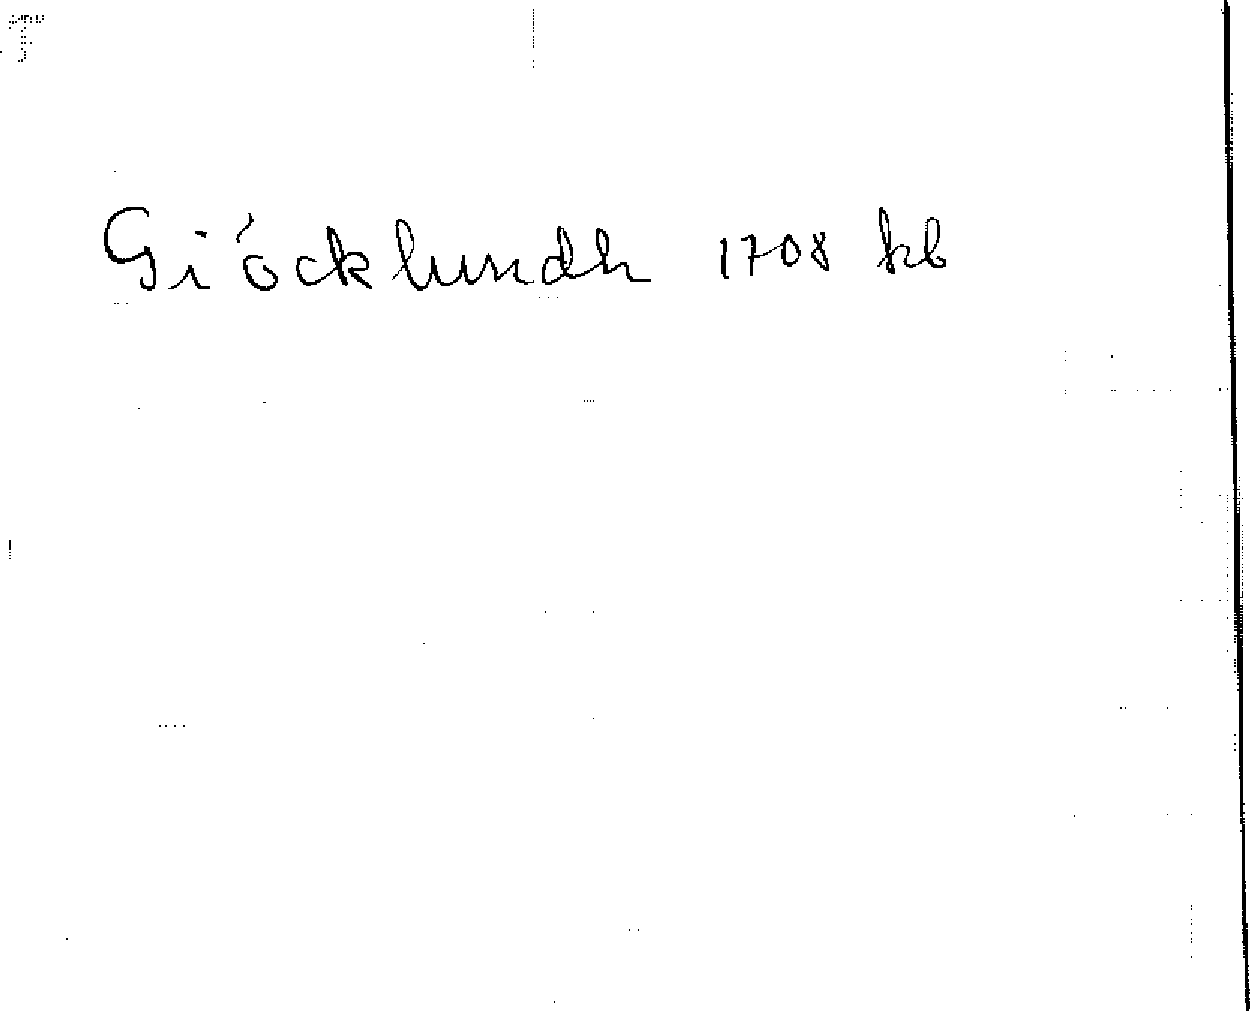 Giöcklundh 1708 kb